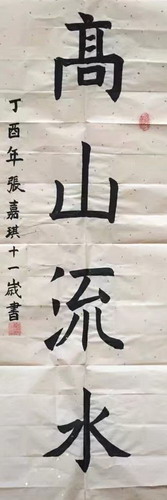 髙山流水
丁酉年張嘉琪十一歲書